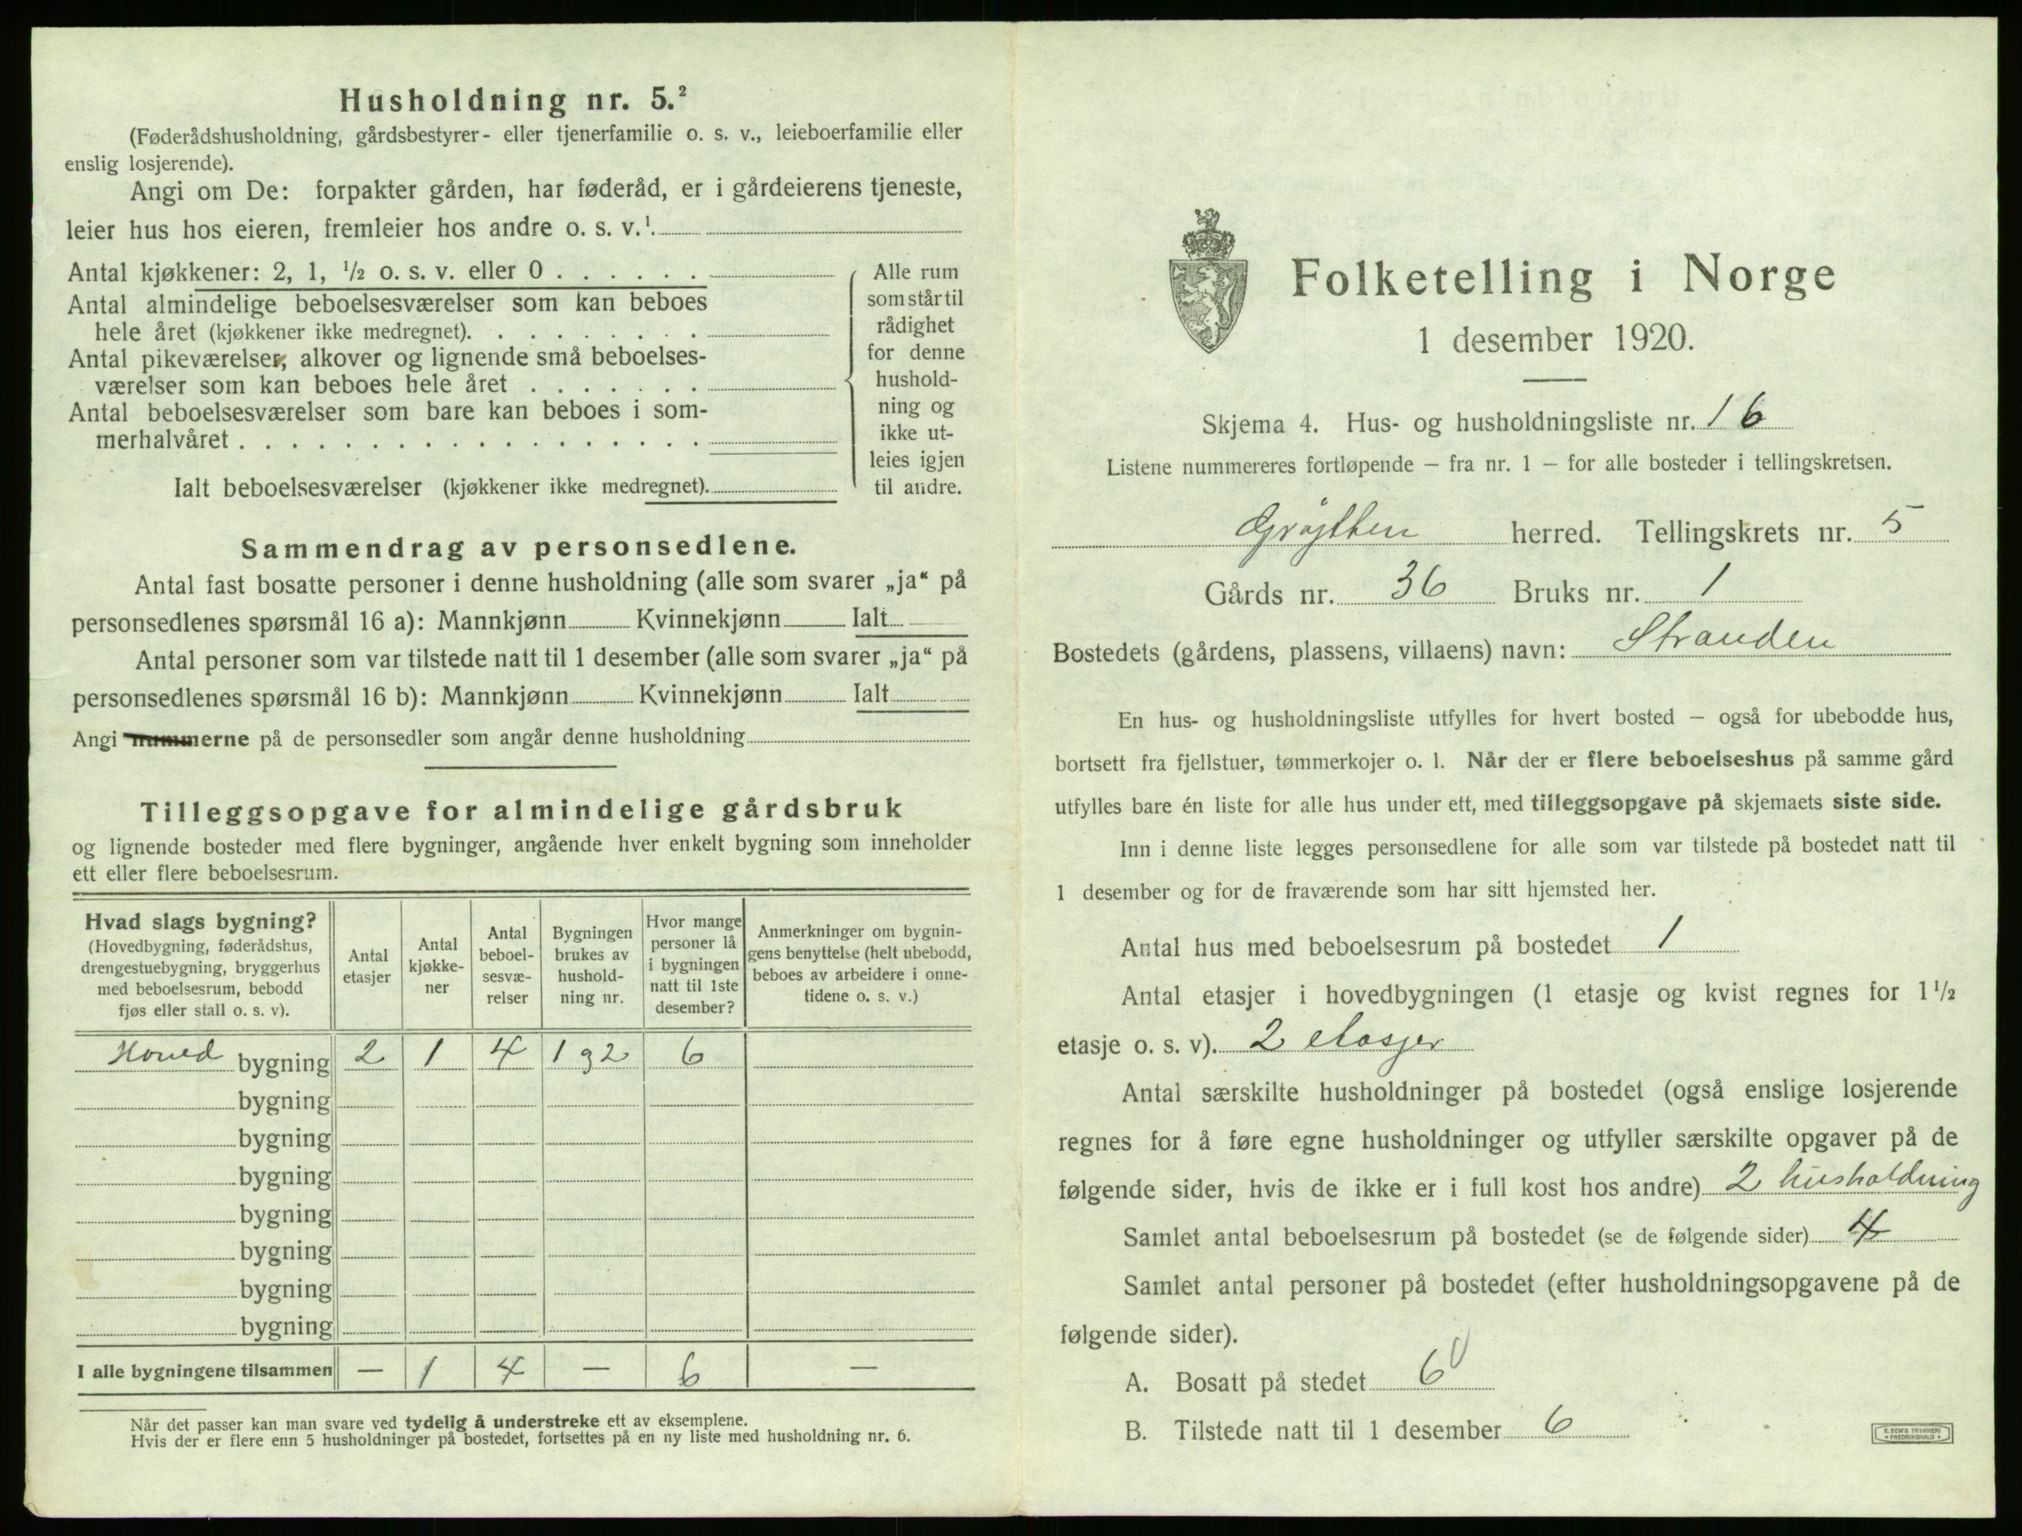 Husholdning nr. 5.²
(Føderådshusholdning, gårdsbestyrer- eller tjenerfamilie o. s. v., leieboerfamilie eller
enslig losjerende).
Angi om De: forpakter gården, har føderåd, er i gårdeierens tjeneste,
leier hus hos eieren, fremleier hos andre o. s. v.¹
Antal kjøkkener: 2, 1, ½ o. s. v. eller 0
Antal almindelige beboelsesværelser som kan beboes
hele året (kjøkkener ikke medregnet)
Antal pikeværelser, alkover og lignende små beboelses-
værelser som kan beboes hele året
Antal beboelsesværelser som bare kan beboes i som-
merhalvåret
Ialt beboelsesværelser (kjøkkener ikke medregnet)
Alle rum
som står til
rådighet
for denne
hushold-
ning og
ikke ut-
leies igjen
til andre.
Sammendrag av personsedlene.
Antal fast bosatte personer i denne husholdning (alle som svarer „ja“ på
personsedlenes spørsmål 16 a): Mannkjønn Kvinnekjønn Ialt
Antal personer som var tilstede natt til 1 desember (alle som svarer „ja“ på
personsedlenes spørsmål 16 b): Mannkjønn Kvinnekjønn Ialt
Angi nummerne på de personsedler som angår denne husholdning
Tilleggsopgave for almindelige gårdsbruk
og lignende bosteder med flere bygninger, angående hver enkelt bygning som inneholder
ett eller flere beboelsesrum.
Hvad slags bygning?
(Hovedbygning, føderådshus,
drengestuebygning, bryggerhus
med beboelsesrum, bebodd
fjøs eller stall o. s. v).
Antal
etasjer
Antal
kjøkke-
ner
Antal
beboel-
sesvæ-
relser
Bygningen
brukes av
hushold-
ning nr.
Hvor mange
personer lå
i bygningen
natt til 1ste
desember?
Anmerkninger om bygnin-
gens benyttelse (helt ubebodd,
beboes av arbeidere i onne-
tidene o. s. v.)
Hoved bygning 2 1 4 1 g 2 6
bygning
bygning
bygning
bygning
bygning
bygning
bygning
I alle bygningene tilsammen — 1 4 — 6 —
Når det passer kan man svare ved tydelig å understreke ett av eksemplene.
Hvis der er flere enn 5 husholdninger på bostedet, fortsettes på en ny liste med husholdning nr. 6.
Folketelling i Norge
1 desember 1920.
Skjema 4. Hus- og husholdningsliste nr. 16
Listene nummereres fortløpende – fra nr. 1 – for alle bosteder i tellingskretsen.
Grøtten herred. Tellingskrets nr. 5
Gårds nr. 36 Bruks nr. 1
Bostedets (gårdens, plassens, villaens) navn: Stranden
En hus- og husholdningsliste utfylles for hvert bosted – også for ubebodde hus,
bortsett fra fjellstuer, tømmerkojer o. l. Når der er flere beboelseshus på samme gård
utfylles bare én liste for alle hus under ett, med tilleggsopgave på skjemaets siste side.
Inn i denne liste legges personsedlene for alle som var tilstede på bostedet natt til
1 desember og for de fraværende som har sitt hjemsted her.
Antal hus med beboelsesrum på bostedet 1
Antal etasjer i hovedbygningen (1 etasje og kvist regnes for 1½
etasje o. s. v). 2 etasjer
Antal særskilte husholdninger på bostedet (også enslige losjerende
regnes for å føre egne husholdninger og utfyller særskilte opgaver på de
følgende sider, hvis de ikke er i full kost hos andre) 2 husholdning
Samlet antal beboelsesrum på bostedet (se de følgende sider) 4
Samlet antal personer på bostedet (efter husholdningsopgavene på de
følgende sider).
A. Bosatt på stedet 6
B. Tilstede natt til 1 desember 6
E. SEM'S TRYKKERI
FREDRIKSHALD